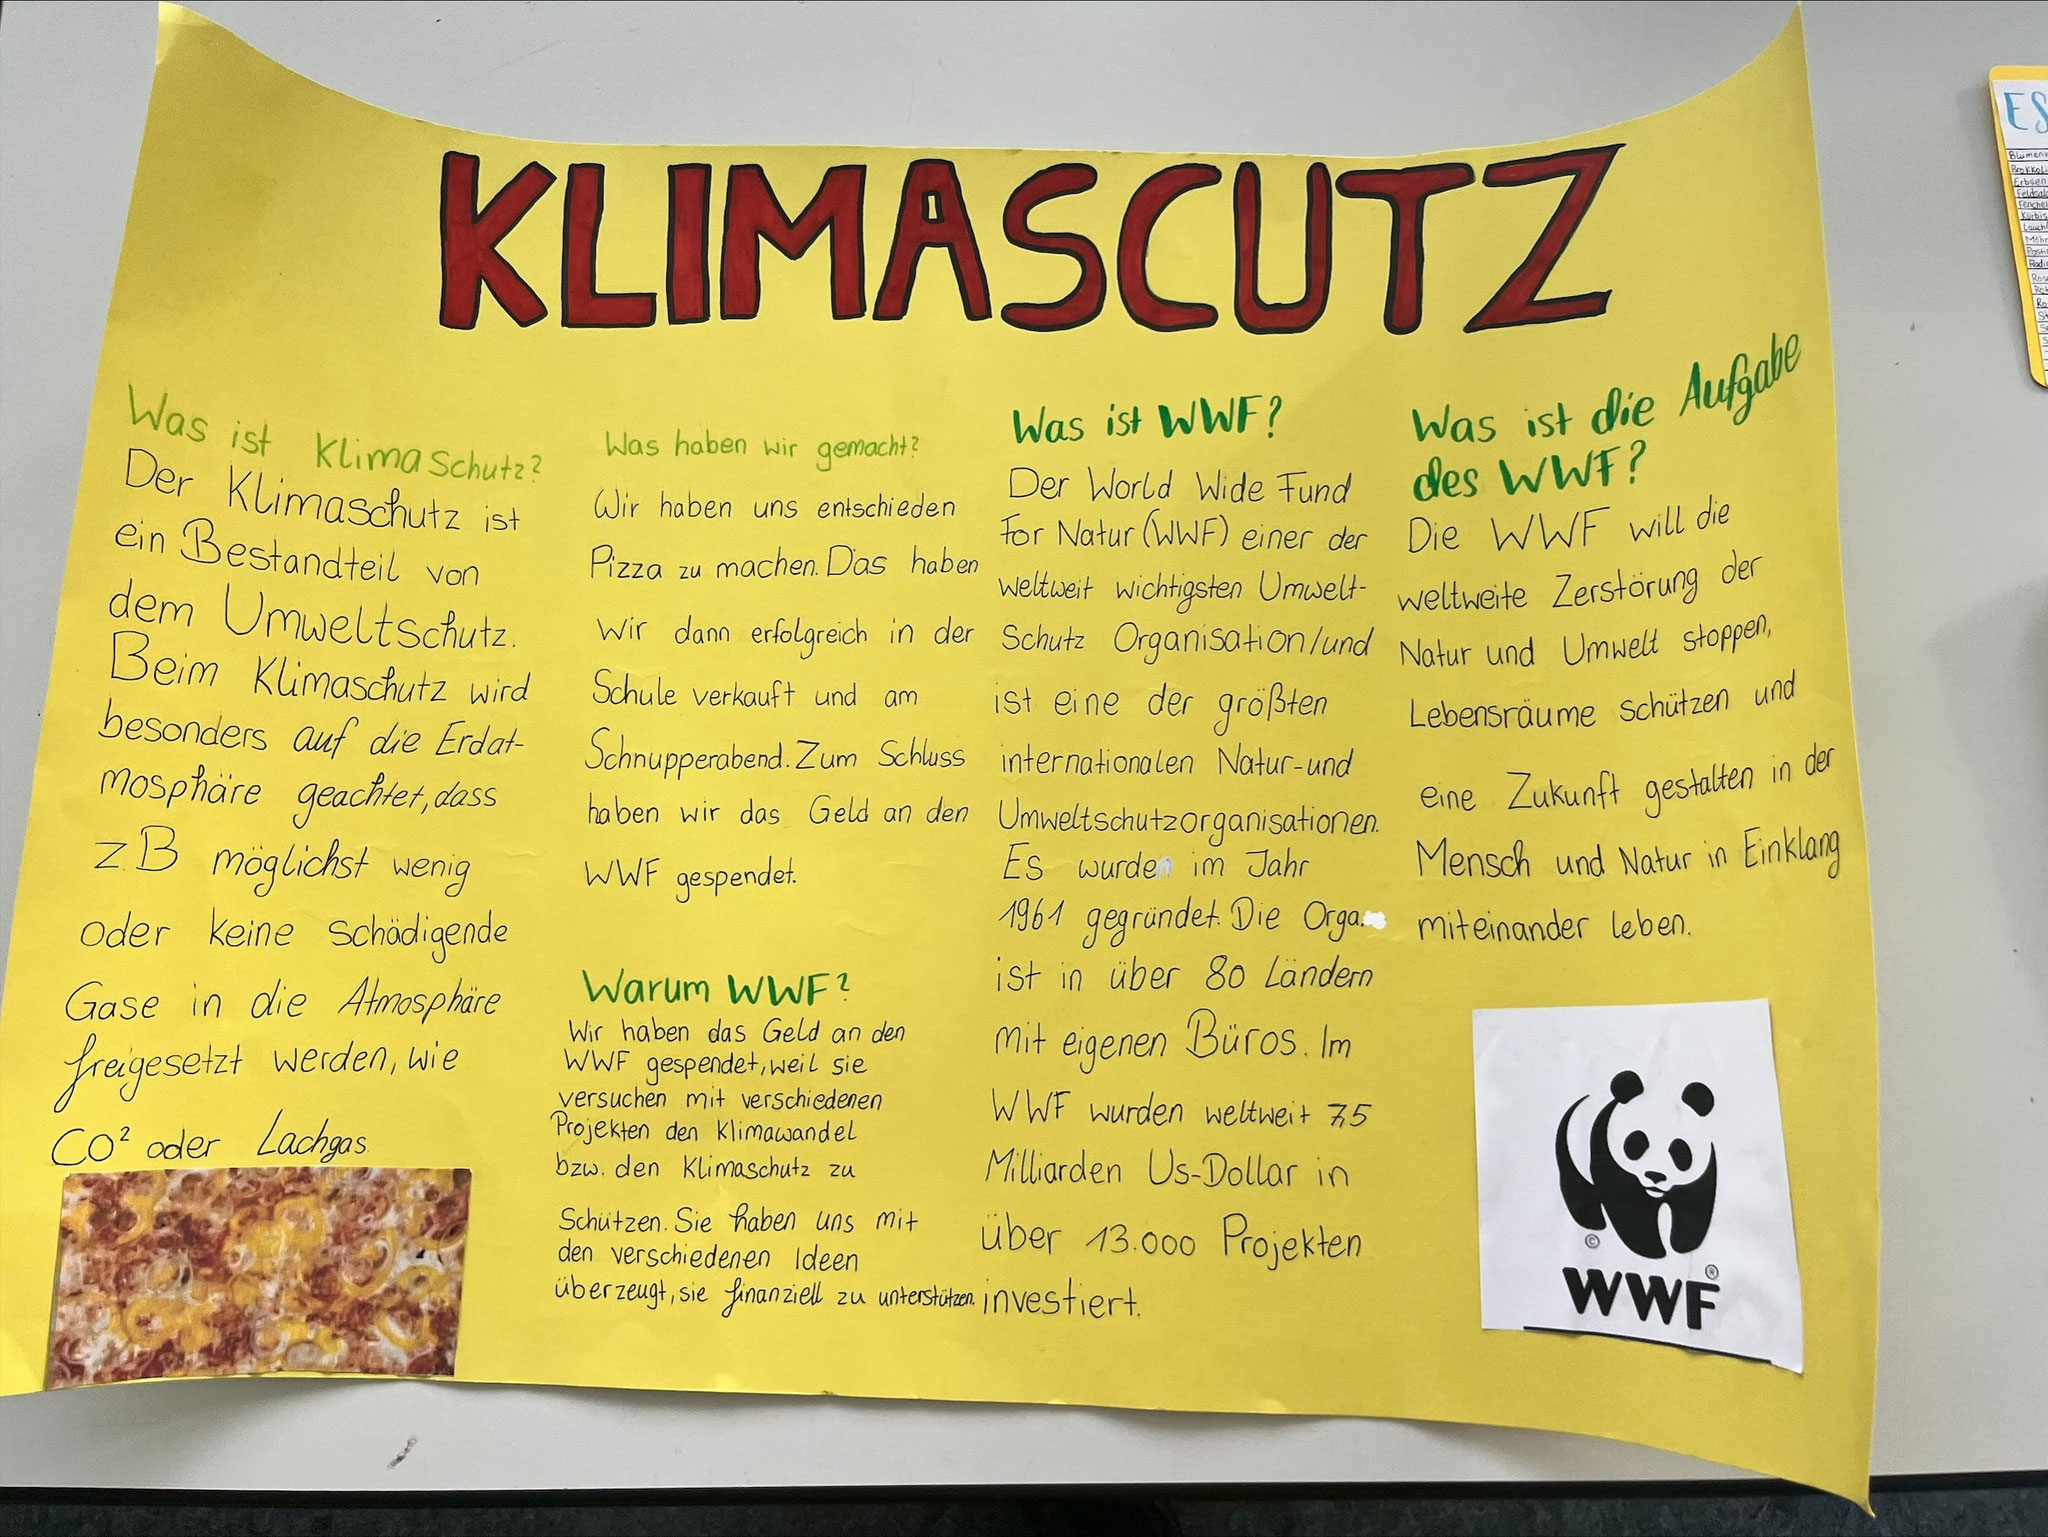 KLIMASCUTZ
Was ist Klimaschutz?
Der Klimaschutz ist
ein Bestandteil von
dem Umweltschutz.
Beim Klimaschutz wird
besonders auf die Erdat-
mosphäre geachtet, dass
z.B möglichst wenig
oder keine schädigende
Gase in die Atmosphäre
freigesetzt werden, wie
CO² oder Lachgas
Was haben wir gemacht?
Wir haben uns entschieden
Pizza zu machen. Das haben
wir dann erfolgreich in der
Schule verkauft und am
Schnupperabend. Zum Schluss
haben wir das Geld an den
WWF gespendet.
Warum WWF?
Wir haben das Geld an den
WWF gespendet, weil sie
versuchen mit verschiedenen
Projekten den Klimawandel
bzw. den Klimaschutz zu
Schützen. Sie haben uns mit
den verschiedenen Ideen
überzeugt, sie finanziell zu unterstützen.
Was ist WWF?
Der World Wide Fund
For Natur (WWF) einer der
weltweit wichtigsten Umwelt-
Schutz Organisation/und
ist eine der größten
internationalen Natur-und
Umweltschutzorganisationen.
Es wurden im Jahr
1961 gegründet. Die Orga.
ist in über 80 Ländern
mit eigenen Büros. Im
WWF wurden weltweit 7,5
Milliarden Us-Dollar in
über 13.000 Projekten
investiert.
Was ist die Aufgabe
des WWF?
Die WWF will die
weltweite Zerstörung der
Natur und Umwelt stoppen,
Lebensräume schützen und
eine Zukunft gestalten in der
Mensch und Natur in Einklang
miteinander leben.
©
®
WWF
ES